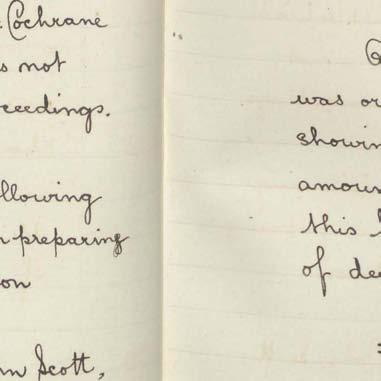 Cochrane
s not
ceedings.
llowing
n preparing
on
n Scott,
was or
showin
amoun
this
of de